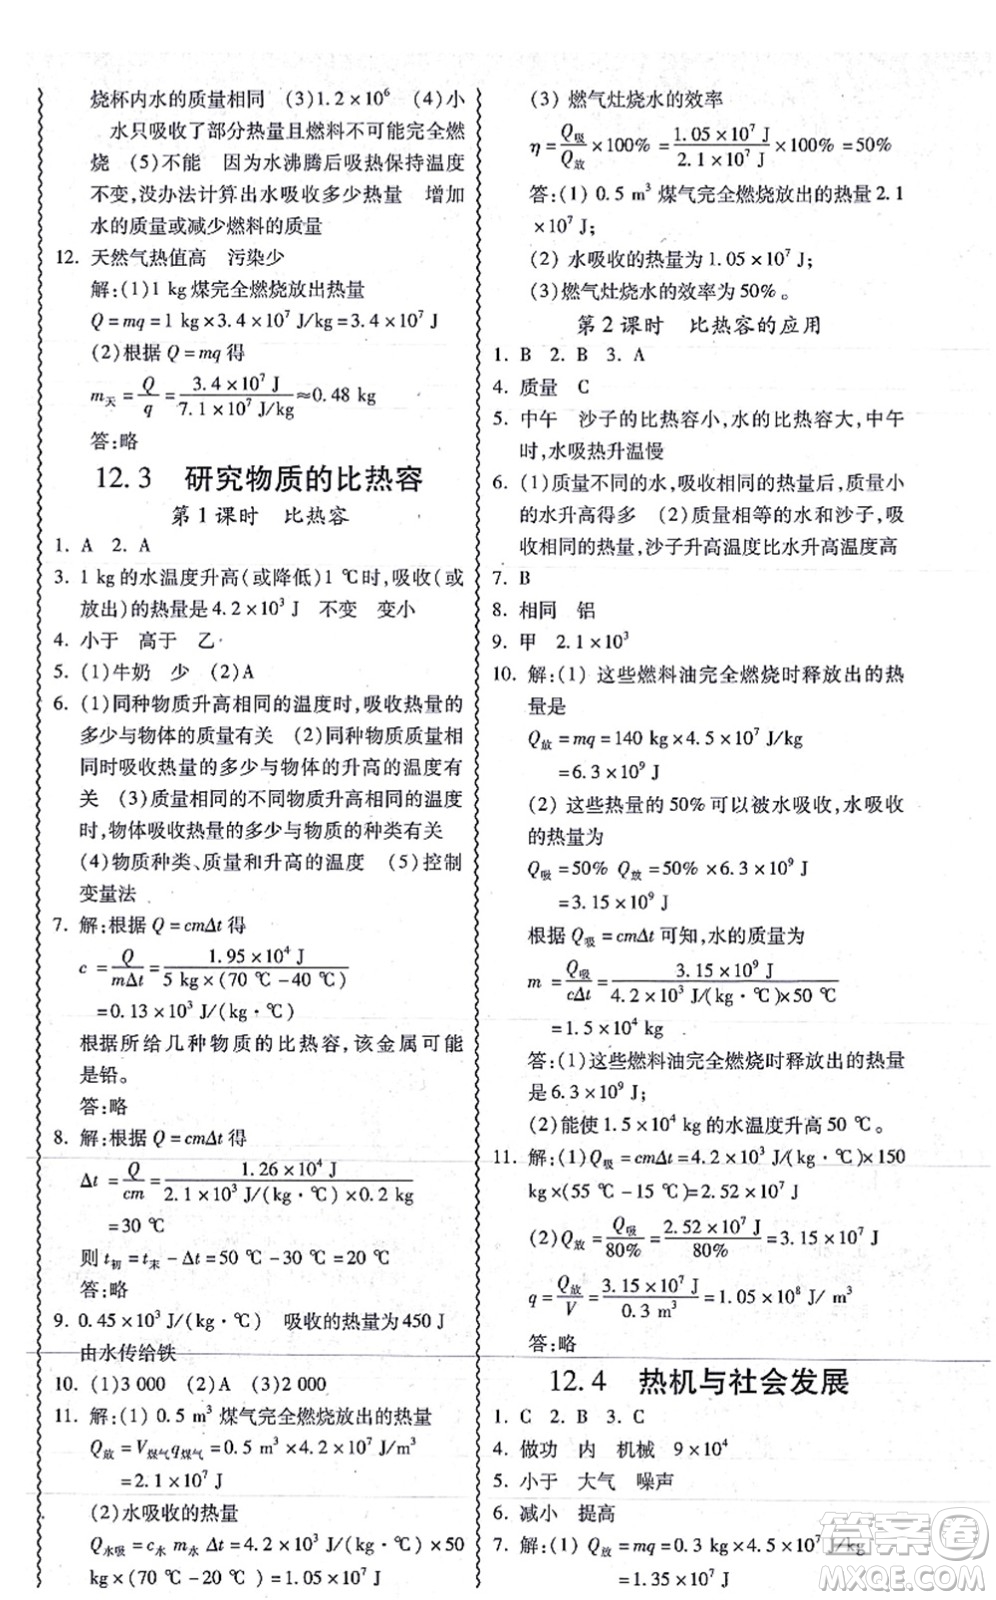 烧杯内水的质量相同 (3)1.2×10⁶ (4)小
水只吸收了部分热量且燃料不可能完全燃
烧 (5)不能 因为水沸腾后吸热保持温度
不变,没办法计算出水吸收多少热量 增加
水的质量或减少燃料的质量
12. 天然气热值高 污染少
解:(1)1 kg煤完全燃烧放出热量
Q=mq=1 kg×3.4×10⁷ J/kg=3.4×10⁷ J
(2)根据 Q=mq 得
m天=Q/q=3.4×10⁷ J/7.1×10⁷ J/kg≈0.48 kg
答:略
12.3 研究物质的比热容
第1课时 比热容
1. A 2. A
3. 1 kg的水温度升高(或降低)1 ℃时,吸收(或
放出)的热量是4.2×10³ J 不变 变小
4. 小于 高于 乙
5. (1)牛奶 少 (2)A
6. (1)同种物质升高相同的温度时,吸收热量的
多少与物体的质量有关 (2)同种物质质量相
同时吸收热量的多少与物体的升高的温度有
关 (3)质量相同的不同物质升高相同的温度
时,物体吸收热量的多少与物质的种类有关
(4)物质种类、质量和升高的温度 (5)控制
变量法
7. 解:根据 Q=cmΔt 得
c=Q/mΔt=1.95×10⁴ J/5 kg×(70 ℃-40 ℃)
=0.13×10³ J/(kg·℃)
根据所给几种物质的比热容,该金属可能
是铅。
答:略
8. 解:根据 Q=cmΔt 得
Δt=Q/cm=1.26×10⁴ J/2.1×10³ J/(kg·℃)×0.2 kg
=30 ℃
则 t初=t末-Δt=50 ℃-30 ℃=20 ℃
答:略
9. 0.45×10³ J/(kg·℃) 吸收的热量为450 J
由水传给铁
10. (1)3 000 (2)A (3)2 000
11. 解:(1) 0.5 m³ 煤气完全燃烧放出的热量
Q放=V煤气q煤气=0.5 m³×4.2×10⁷ J/m³
=2.1×10⁷ J
(2)水吸收的热量
Q水吸=c水 m水 Δt=4.2×10³ J/(kg·℃)×50
kg×(70 ℃-20 ℃)=1.05×10⁷ J
(3) 燃气灶烧水的效率
η=Q吸/Q放×100%=1.05×10⁷ J/2.1×10⁷ J×100%=50%
答:(1) 0.5 m³ 煤气完全燃烧放出的热量2.1
×10⁷ J;
(2) 水吸收的热量为1.05×10⁷ J;
(3)燃气灶烧水的效率为50%。
第2课时 比热容的应用
1. B 2. B 3. A
4. 质量 C
5. 中午 沙子的比热容小,水的比热容大,中午
时,水吸热升温慢
6. (1)质量不同的水,吸收相同的热量后,质量小
的水升高得多 (2)质量相等的水和沙子,吸
收相同的热量,沙子升高温度比水升高温度高
7. B
8. 相同 铝
9. 甲 2.1×10³
10. 解:(1) 这些燃料油完全燃烧时释放出的热
量是
Q放=mq=140 kg×4.5×10⁷ J/kg
=6.3×10⁹ J
(2) 这些热量的50%可以被水吸收,水吸收
的热量为
Q吸=50% Q放=50%×6.3×10⁹ J
=3.15×10⁹ J
根据 Q吸=cmΔt 可知,水的质量为
m=Q吸/cΔt=3.15×10⁹ J/4.2×10³ J/(kg·℃)×50 ℃
=1.5×10⁴ kg
答:(1)这些燃料油完全燃烧时释放出的热量
量是6.3×10⁹ J;
(2)能使1.5×10⁴ kg的水温度升高50 ℃。
11. 解:(1)Q吸=cmΔt=4.2×10³ J/(kg·℃)×150
kg×(55 ℃-15 ℃)=2.52×10⁷ J
(2)Q放=Q吸/80%=2.52×10⁷ J/80%=3.15×10⁷ J
q=Q放/V=3.15×10⁷ J/0.3 m³=1.05×10⁸ J/m³
答:略
12.4 热机与社会发展
1. C 2. B 3. C
4. 做功 内 机械 9×10⁴
5. 小于 大气 噪声
6. 减小 提高
7. 解:(1) Q放=mq=0.3 kg×4.5×10⁷ J/kg
=1.35×10⁷ J
答案圈
MXQE.COM